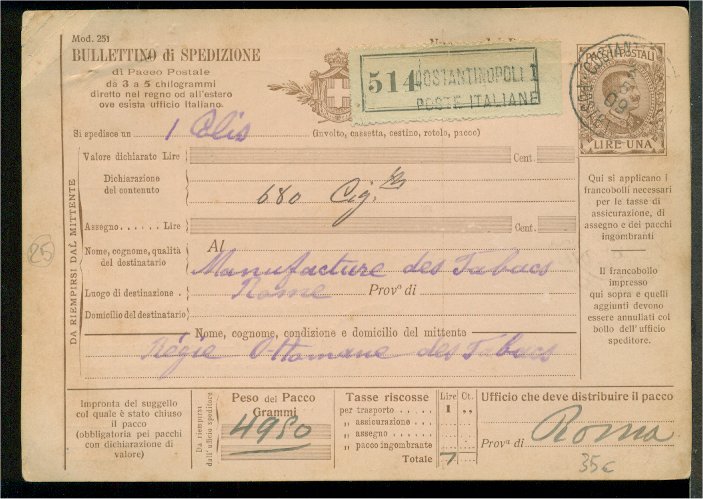 Mod. 251
BULLETTINO di SPEDIZIONE
di Pacco Postale
da 3 a 5 chilogrammi
diretto nel regno od all'estero
ove esista ufficio italiano.
514
COSTANTINOPOLI 1
POSTE ITALIANE
POSTALI
LIRE UNA
Si spedisce un 1 Colis (involto, cassetta, cestino, rotolo, pacco)
DA RIEMPIRSI DAL MITTENTE
Valore dichiarato Lire Cent.
Dichiarazione
del contenuto
680 Cig.
Assegno...... Lire Cent.
Nome, cognome, qualità
del destinatario
Al
Manufacture des Tabacs
Luogo di destinazione. Rome Prov.ª di
Domicilio del destinatario
Nome, cognome, condizione e domicilio del mittente
Régie Ottomane des Tabacs
Qui si applicano i
francobolli necessari
per le tasse di
assicurazione, di
assegno e dei pacchi
ingombranti
Il francobollo
impresso
qui sopra e quelli
aggiunti devono
essere annullati col
bollo dell'ufficio
speditore.
25
Impronta del suggello
col quale è stato chiuso
il pacco
(obbligatoria pei pacchi
con dichiarazione di
valore)
Da riempirsi
dall'ufficio speditore
Peso del Pacco
Grammi
4950
Tasse riscosse Lire Ct.
per trasporto ..... 1 „
„ assicurazione ....
„ assegno .....
„ pacco ingombrante
Totale 7
Ufficio che deve distribuire il pacco
Roma
Prov.ª di
35c